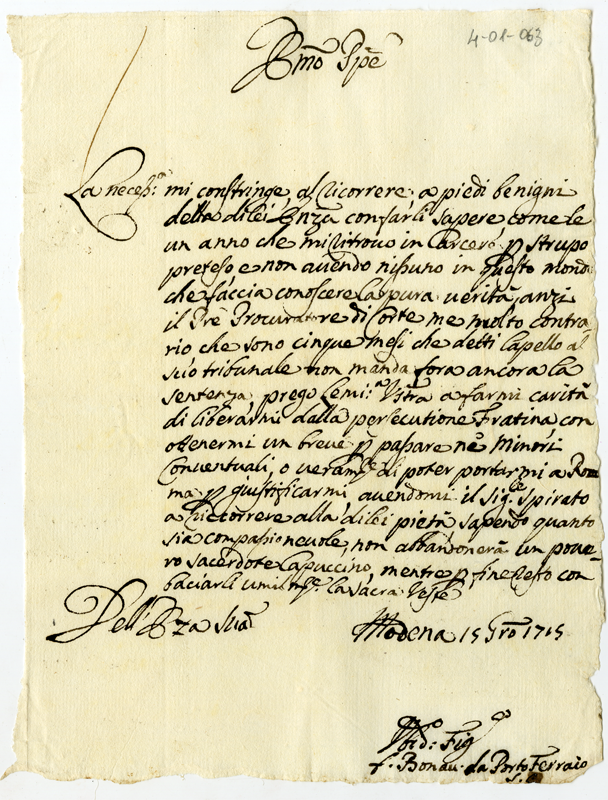 4-01-063
Emo Ppe
La necess:a mi constringe, al ricorrere a piedi benigni
della di lei Enza con farli sapere come le
un anno che mi ritrouo in Carcere p strupo
preteso e non auendo nissuno in questo mondo
che faccia conoscere la pura uerità, anzi
il Pre Procuratore di Corte me molto contra-
rio che sono cinque mesi che detti Capello al
suo tribunale non manda fora ancora la
sentenza, prego Lemi:a Vstra a farmi carità
di liberarmi dalla persecutione Fratina con
ottenermi un breue p passare ne Minori
Conuentuali, o ueramte di poter portarmi a Ro-
ma p giustificarmi auendomi il sigre spirato
a riccorrere alla di lei pietà sapendo quanto
sia compasioneuole, non abbandonerà un poue-
ro sacerdote Capuccino, mentre p fine resto con
baciarli umilmte la sacra Veste
Dell' Eza Sua
Modena 15 1715
f. Bonau. da Porto Ferraio